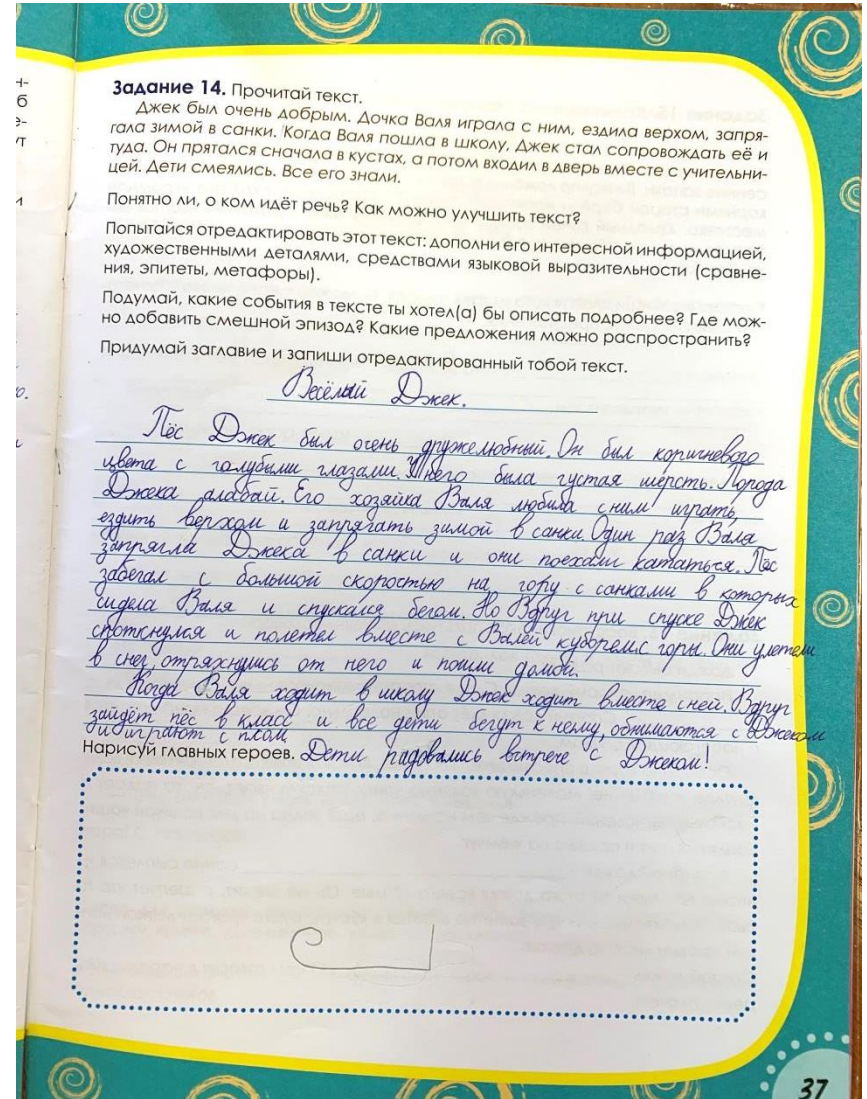 н-
б
е-
ут
и
о.
и
Задание 14. Прочитай текст.
Джек был очень добрым. Дочка Валя играла с ним, ездила верхом, запря-
гала зимой в санки. Когда Валя пошла в школу, Джек стал сопровождать её и
туда. Он прятался сначала в кустах, а потом входил в дверь вместе с учительни-
цей. Дети смеялись. Все его знали.
Понятно ли, о ком идёт речь? Как можно улучшить текст?
Попытайся отредактировать этот текст: дополни его интересной информацией,
художественными деталями, средствами языковой выразительности (сравне-
ния, эпитеты, метафоры).
Подумай, какие события в тексте ты хотел(а) бы описать подробнее? Где мож-
но добавить смешной эпизод? Какие предложения можно распространить?
Придумай заглавие и запиши отредактированный тобой текст.
Весёлый Джек.
Пёс Джек был очень дружелюбный. Он был коричневого
цвета с голубыми глазами. У него была густая шерсть. Порода
Джека алабай. Его хозяйка Валя любила с ним играть,
ездить верхом и запрягать зимой в санки. Один раз Валя
запрягла Джека в санки и они поехали кататься. Пёс
забегал с большой скоростью на гору с санками в которых
сидела Валя и спускался бегом. Но Вдруг при спуске Джек
споткнулся и полетел вместе с Валей кубарем с горы. Они улетели
в снег, отряхнулись от него и пошли домой.
Когда Валя ходит в школу Джек ходит вместе с ней. Вдруг
зайдёт пёс в класс и все дети бегут к нему, обнимаются с Джеком
и играют с псом
Нарисуй главных героев. Дети радовались встрече с Джеком!
37